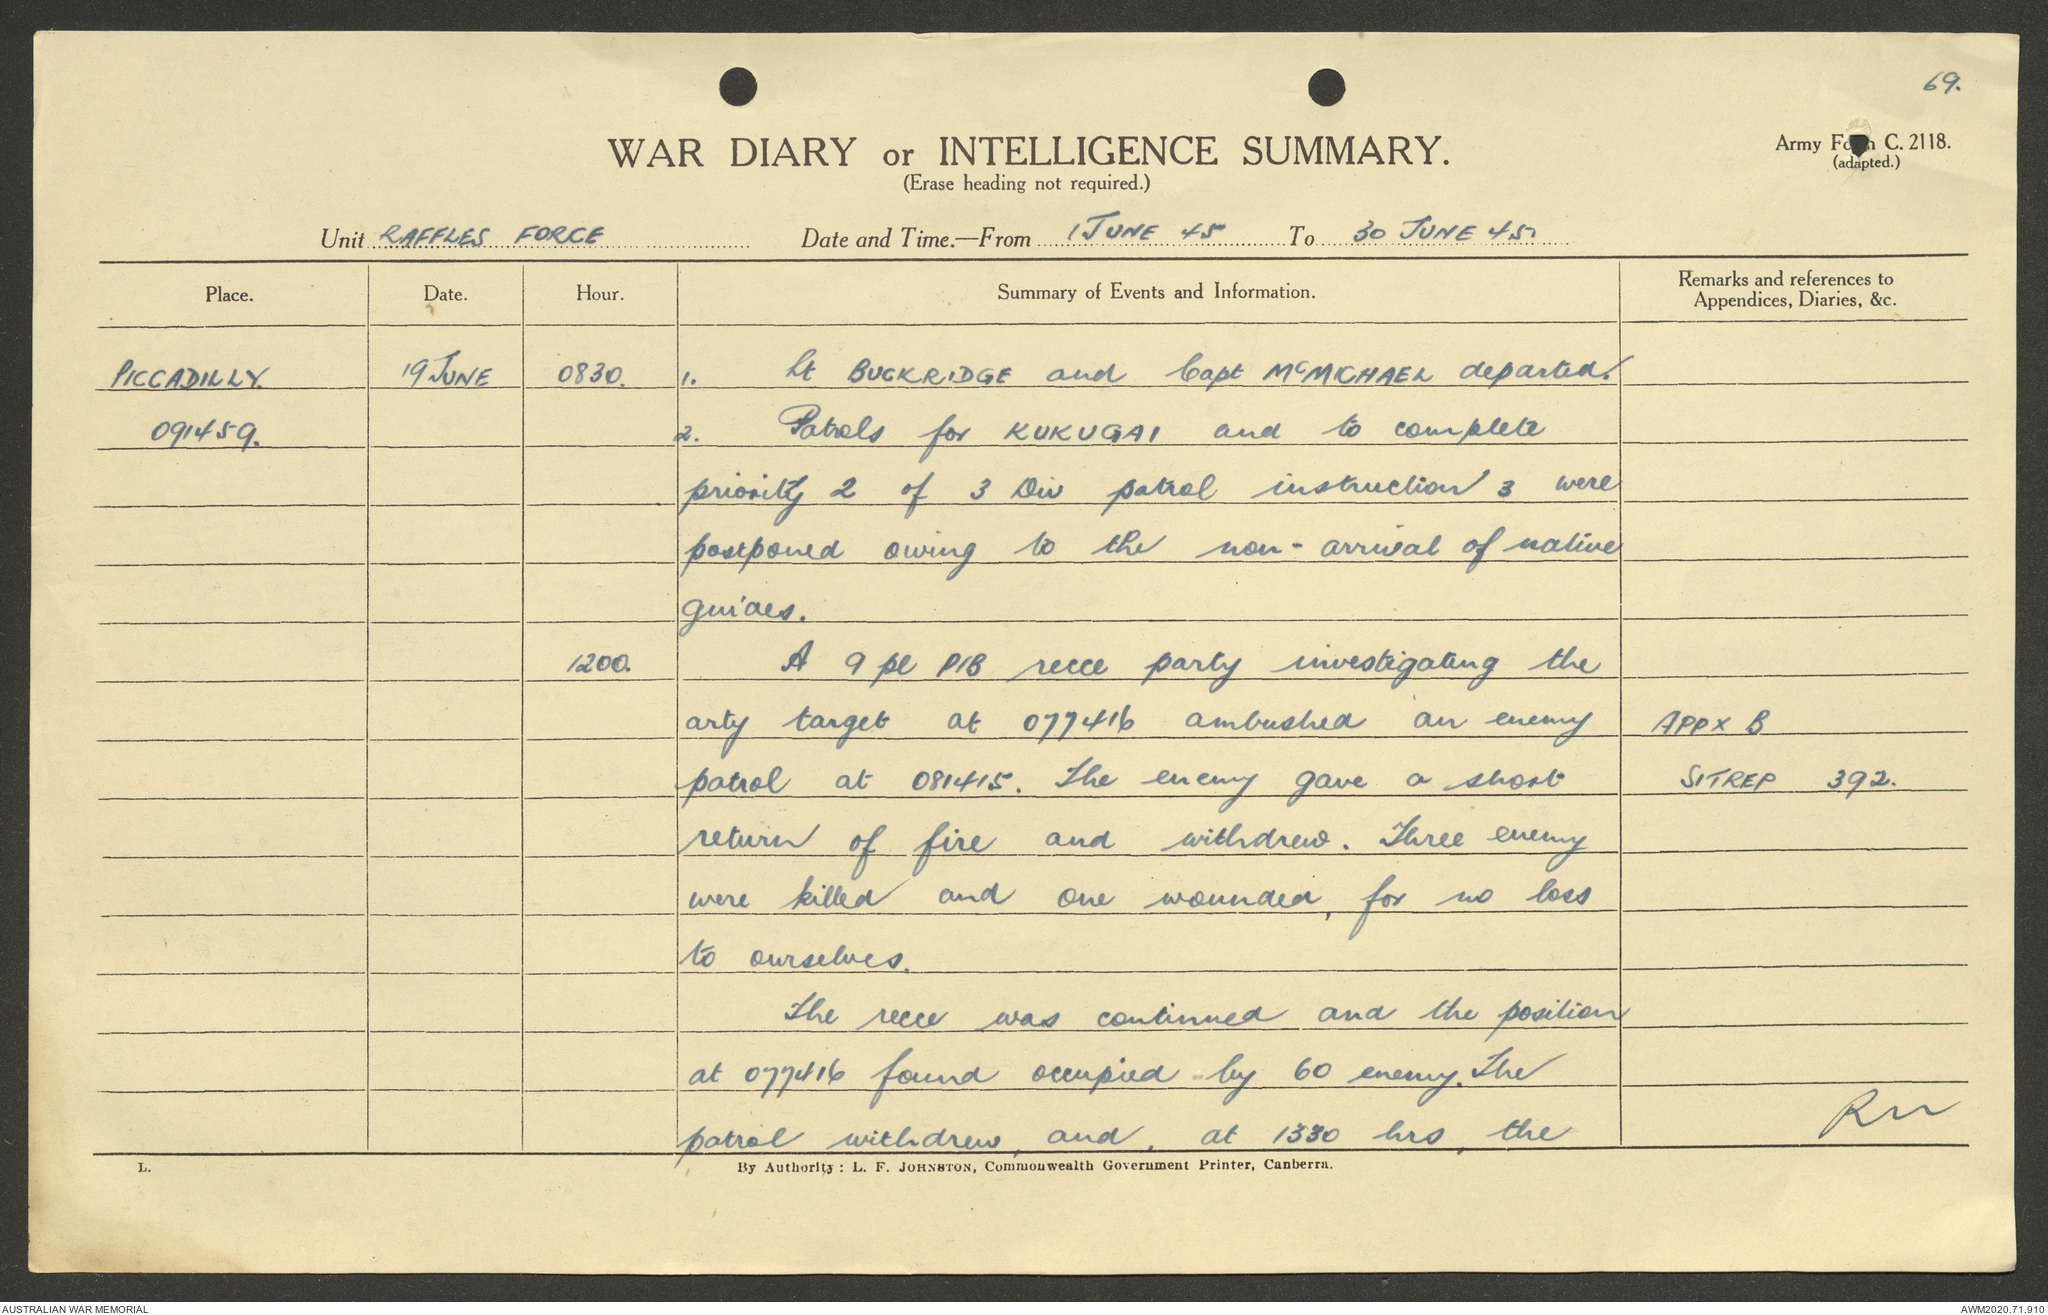 69.
WAR DIARY or INTELLIGENCE SUMMARY.
(Erase heading not required.)
Army Form C. 2118.
(adapted.)
Unit RAFFLES FORCE Date and Time.—From 1 JUNE 45 To 30 JUNE 45.
Place. Date. Hour. Summary of Events and Information. Remarks and references to
Appendices, Diaries, &c.
PICCADILLY. 19 JUNE 0830. 1. Lt BUCKRIDGE and Capt McMICHAEL departed.
091459. 2. Patrols for KUKUGAI and to complete
priority 2 of 3 Div patrol instruction 3 were
postponed owing to the non-arrival of native
guides.
1200. A 9 pl PIB recce party investigating the
arty target at 077416 ambushed an enemy APPX B
patrol at 081415. The enemy gave a short SITREP 392.
return of fire and withdrew. Three enemy
were killed and one wounded, for no loss
to ourselves.
The recce was continued and the position
at 077416 found occupied by 60 enemy. The
patrol withdrew, and, at 1330 hrs, the
L. By Authority: L. F. JOHNSTON, Commonwealth Government Printer, Canberra.
AUSTRALIAN WAR MEMORIAL AWM2020.71.910